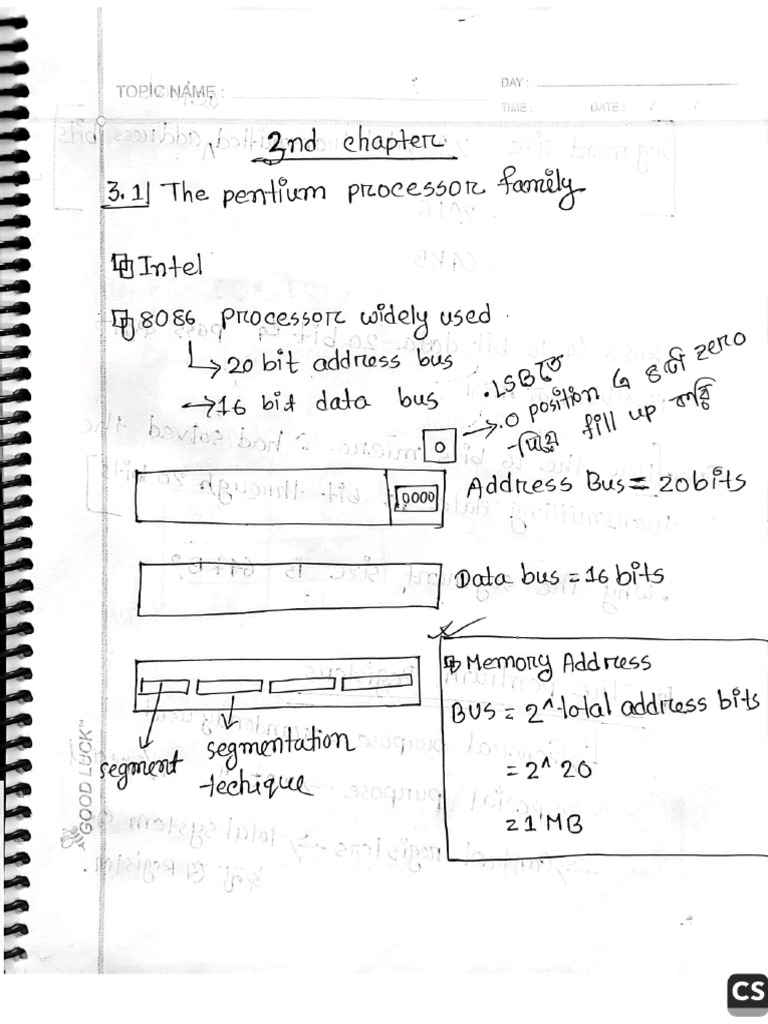 TOPIC NAME :
DAY :
TIME :
DATE : / /
2nd chapter
3.1| The pentium processor family
Intel
8086 processor widely used.
→ 20 bit address bus
→ 16 bit data bus
. LSB তে
. 0 position এ ৪টা zero
দিয়ে fill up করি
0
0000
Address Bus = 20 bits
Data bus = 16 bits
segment
segmentation
techique
Memory Address
BUS = 2^total address bits
= 2^20
= 1 MB
GOOD LUCK™
CS